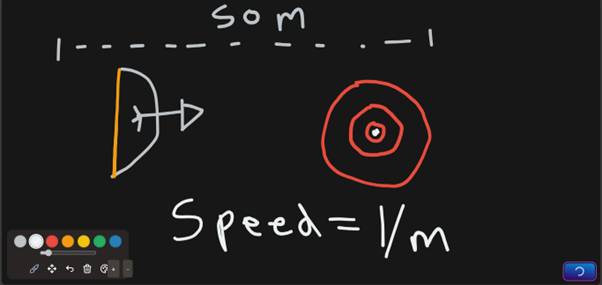 50 m
Speed = 1/m